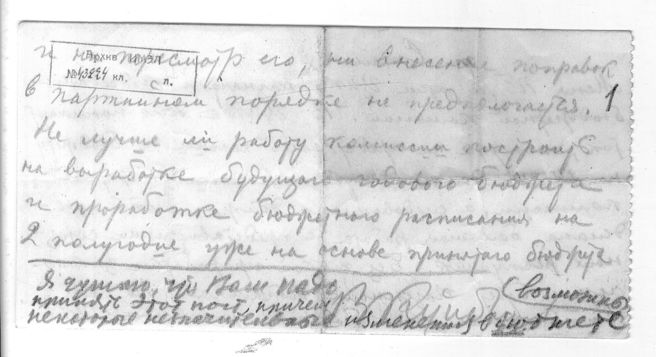 Архив ИМЭЛ
№43294 кл. л.
и на просмотр его, ни внесение поправок
в партийном порядке не предполагается. 1
Не лучше ли работу комиссии построить
на выработке будущего годового бюджета
и проработке бюджетного расписания на
2 полугодие уже на основе принятого бюджета
Я думаю, что Вам надо
принять этот пост, причем (возможны
некоторые незначительные изменения в бюджете